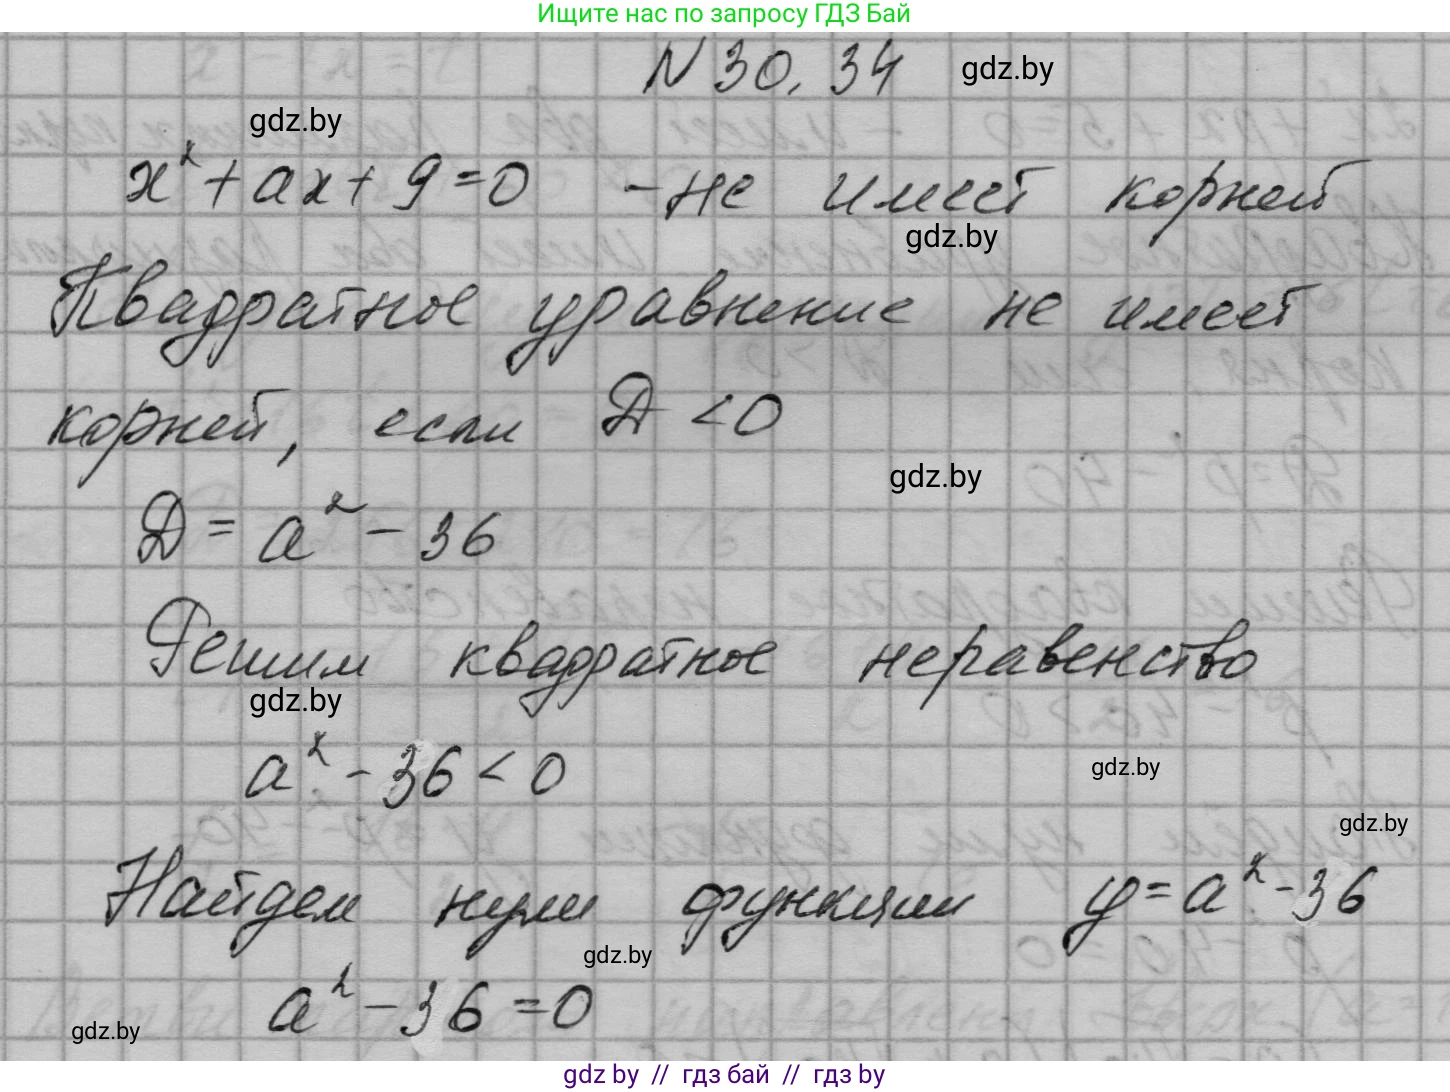 Ищите нас по запросу ГДЗ Бай
N 30.34
gdz.by
gdz.by
x² + ax + 9 = 0 - не имеет корней
gdz.by
Квадратное уравнение не имеет
корней, если D < 0
gdz.by
D = a² - 36
Решим квадратное неравенство
gdz.by
a² - 36 < 0
gdz.by
gdz.by
Найдем нули функции y = a² - 36
gdz.by
a² - 36 = 0
gdz.by
gdz by // гдз бай // гдз by